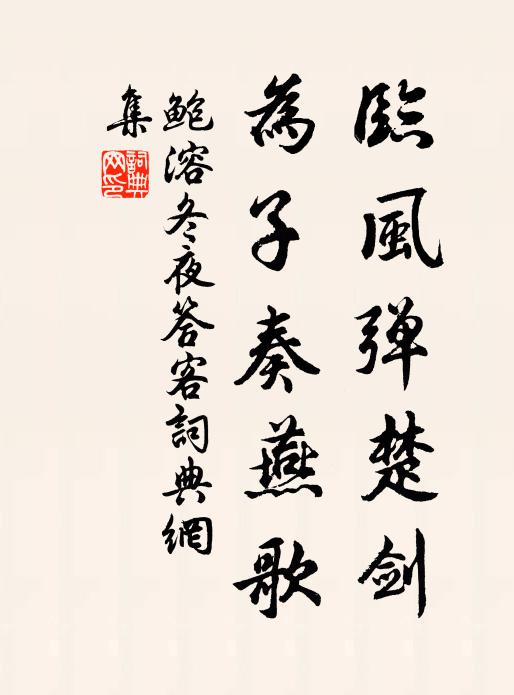 臨風弹楚剑
為子奏燕歌
鲍溶冬夜答客詞典網
集
詞典
网印